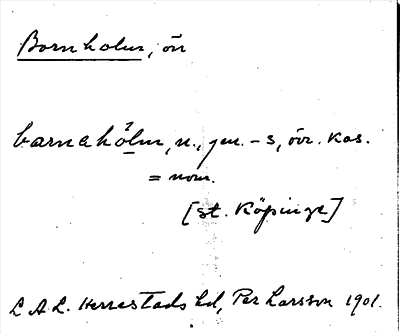 Bornholm, ön
barnahólm, n., gen. -s, övr. kas.
= nom.
[St. Köpinge]
L.A.L. Herrestads hd, Per Larsson 1901.